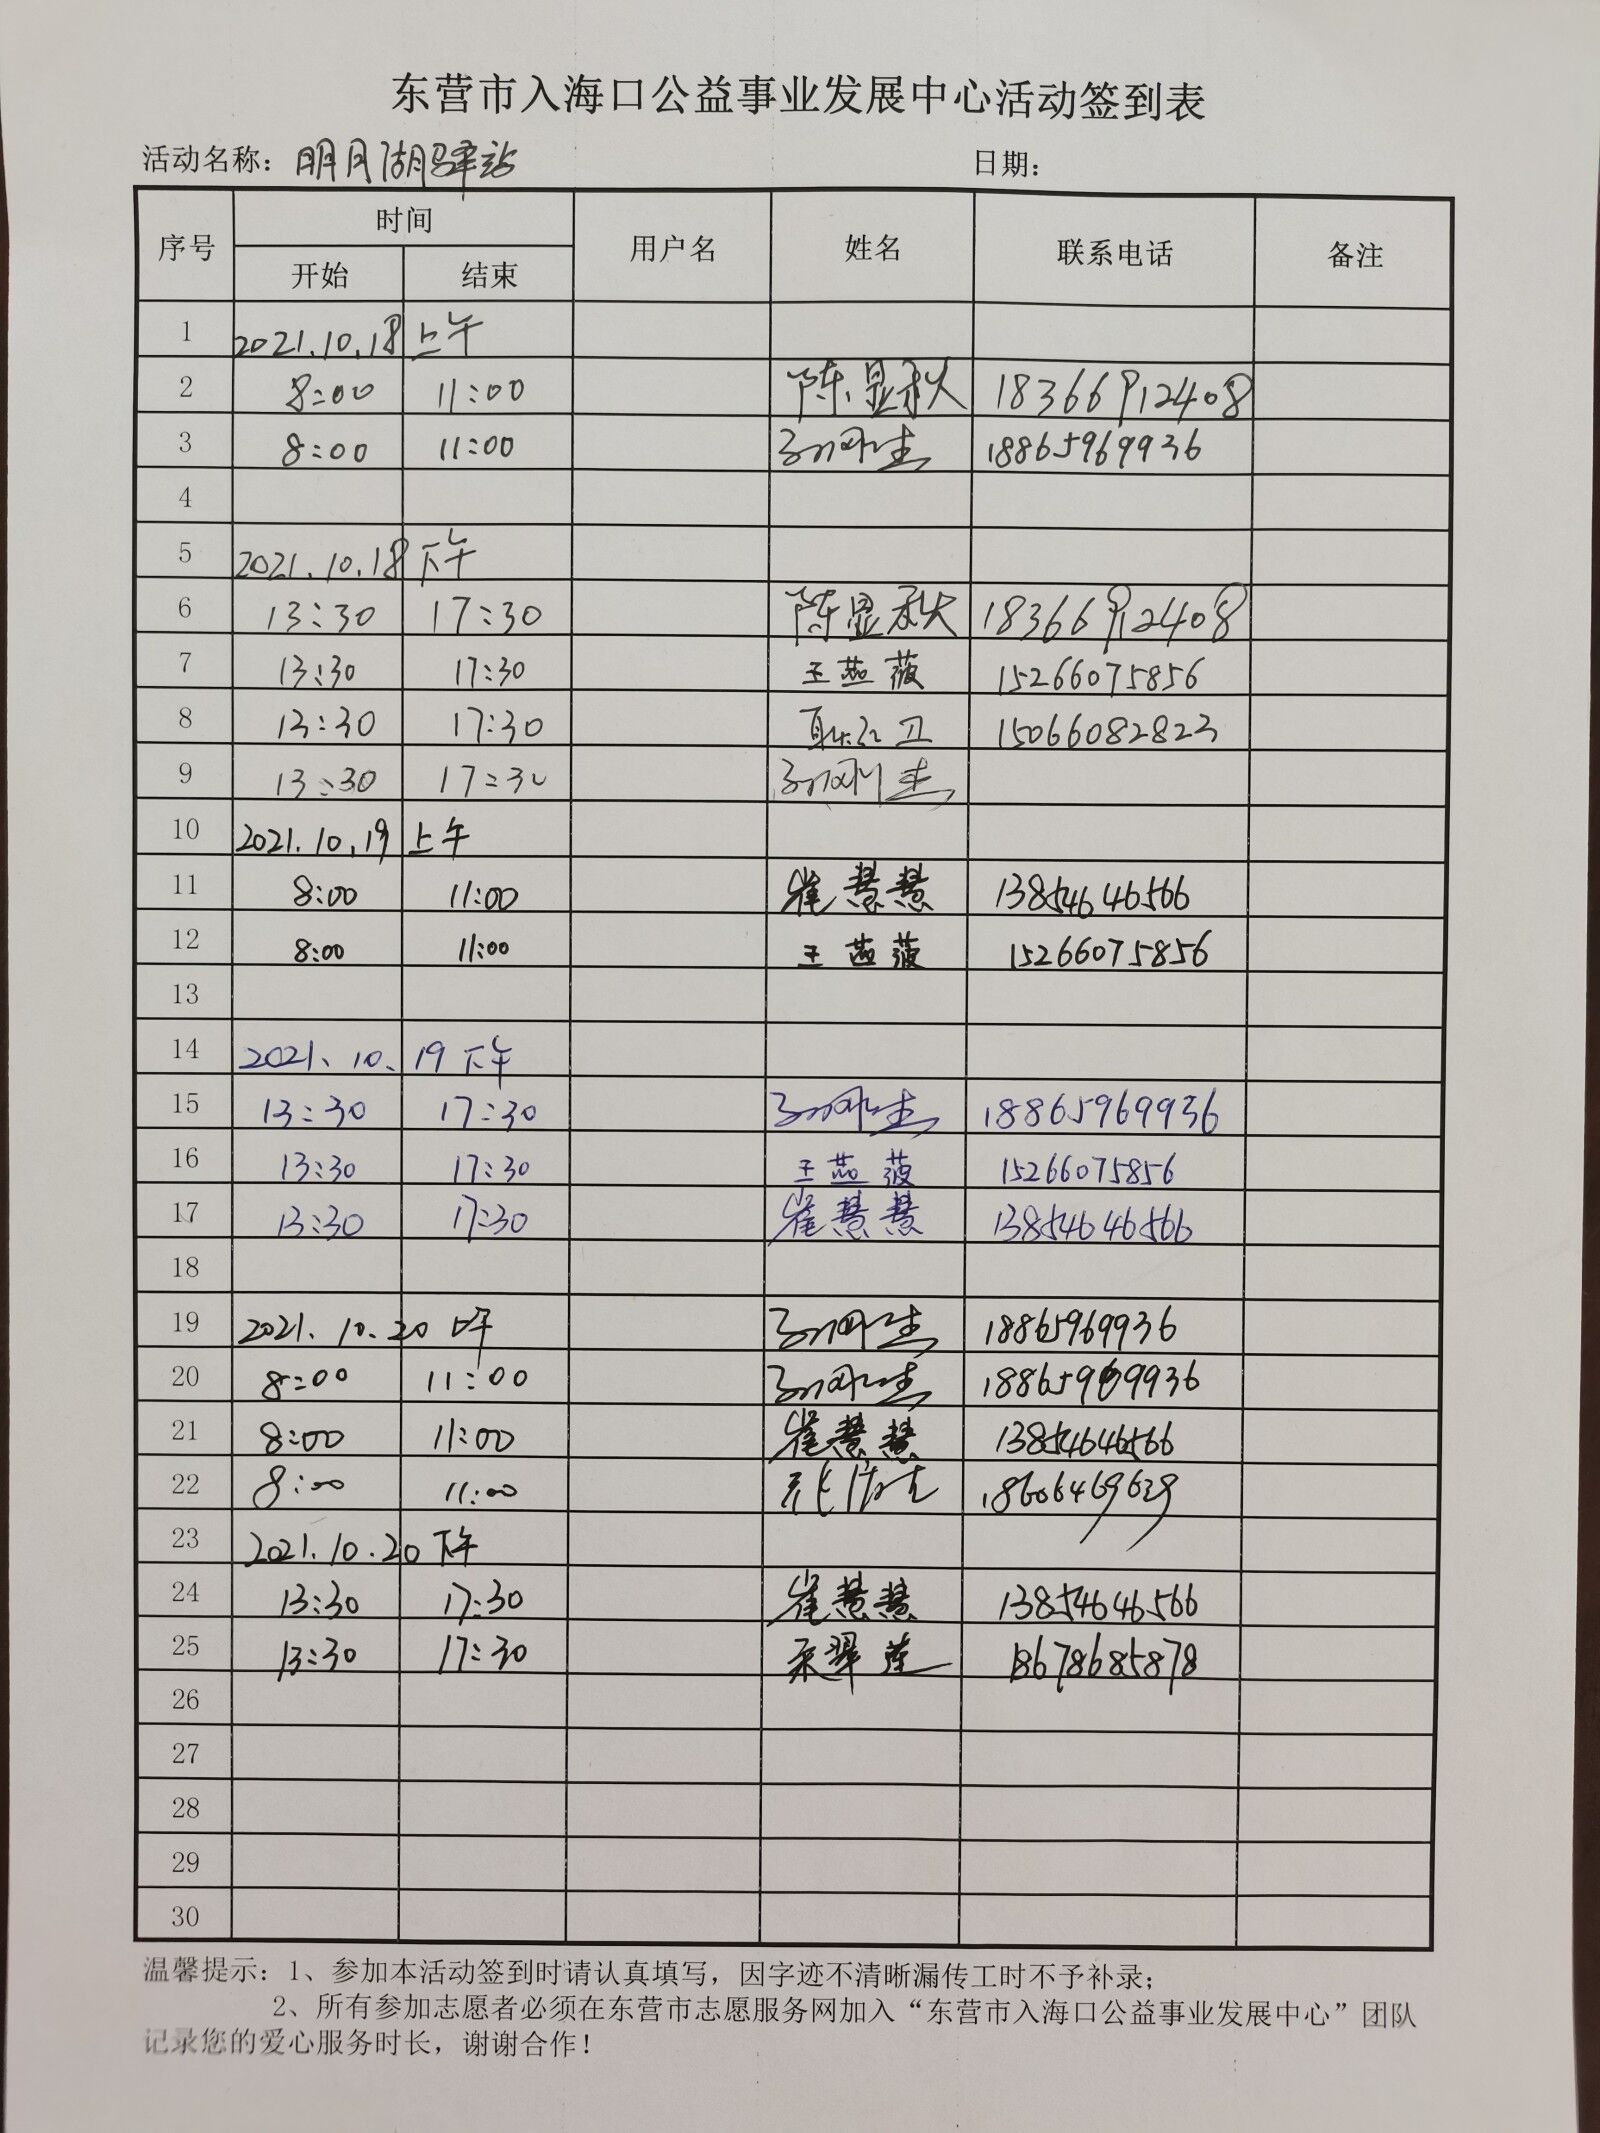 东营市入海口公益事业发展中心活动签到表
活动名称：明月湖驿站 日期：
序号 时间 用户名 姓名 联系电话 备注
开始 结束
1 2021.10.18 上午
2 8:00 11:00 陈显秋 18366912408
3 8:00 11:00 18865969936
4
5 2021.10.18 下午
6 13:30 17:30 陈显秋 18366912408
7 13:30 17:30 王燕薇 15266075856
8 13:30 17:30 耿红卫 15066082823
9 13:30 17:30
10 2021.10.19 上午
11 8:00 11:00 崔慧慧 13854646566
12 8:00 11:00 王燕薇 15266075856
13
14 2021.10.19 下午
15 13:30 17:30 18865969936
16 13:30 17:30 王燕薇 15266075856
17 13:30 17:30 崔慧慧 13854646566
18
19 2021.10.20 上午 18865969936
20 8:00 11:00 18865969936
21 8:00 11:00 崔慧慧 13854646566
22 8:00 11:00
23 2021.10.20 下午
24 13:30 17:30 崔慧慧 13854646566
25 13:30 17:30 18678685878
26
27
28
29
30
温馨提示：1、参加本活动签到时请认真填写，因字迹不清晰漏传工时不予补录；
2、所有参加志愿者必须在东营市志愿服务网加入“东营市入海口公益事业发展中心”团队
记录您的爱心服务时长，谢谢合作！